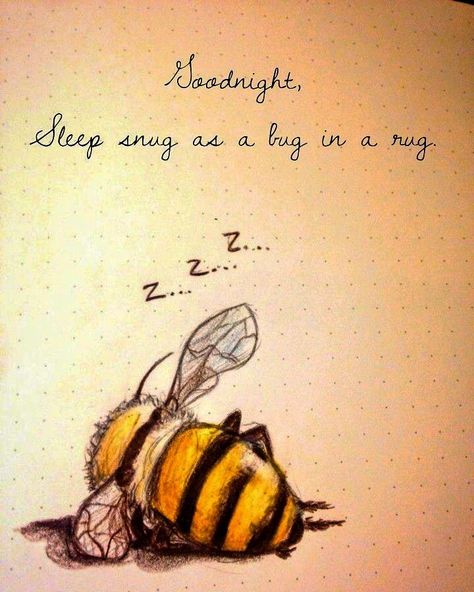 Goodnight,
Sleep snug as a bug in a rug.
z... z... z...